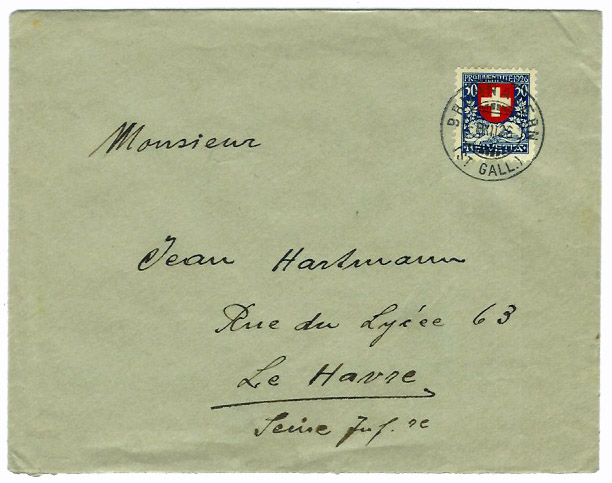 PRO JUVENTUTE 1926
30 30
HELVETIA
(ST. GALL.)
Monsieur
Jean Hartmann
Rue du Lycée 63
Le Havre
Seine Inf.re